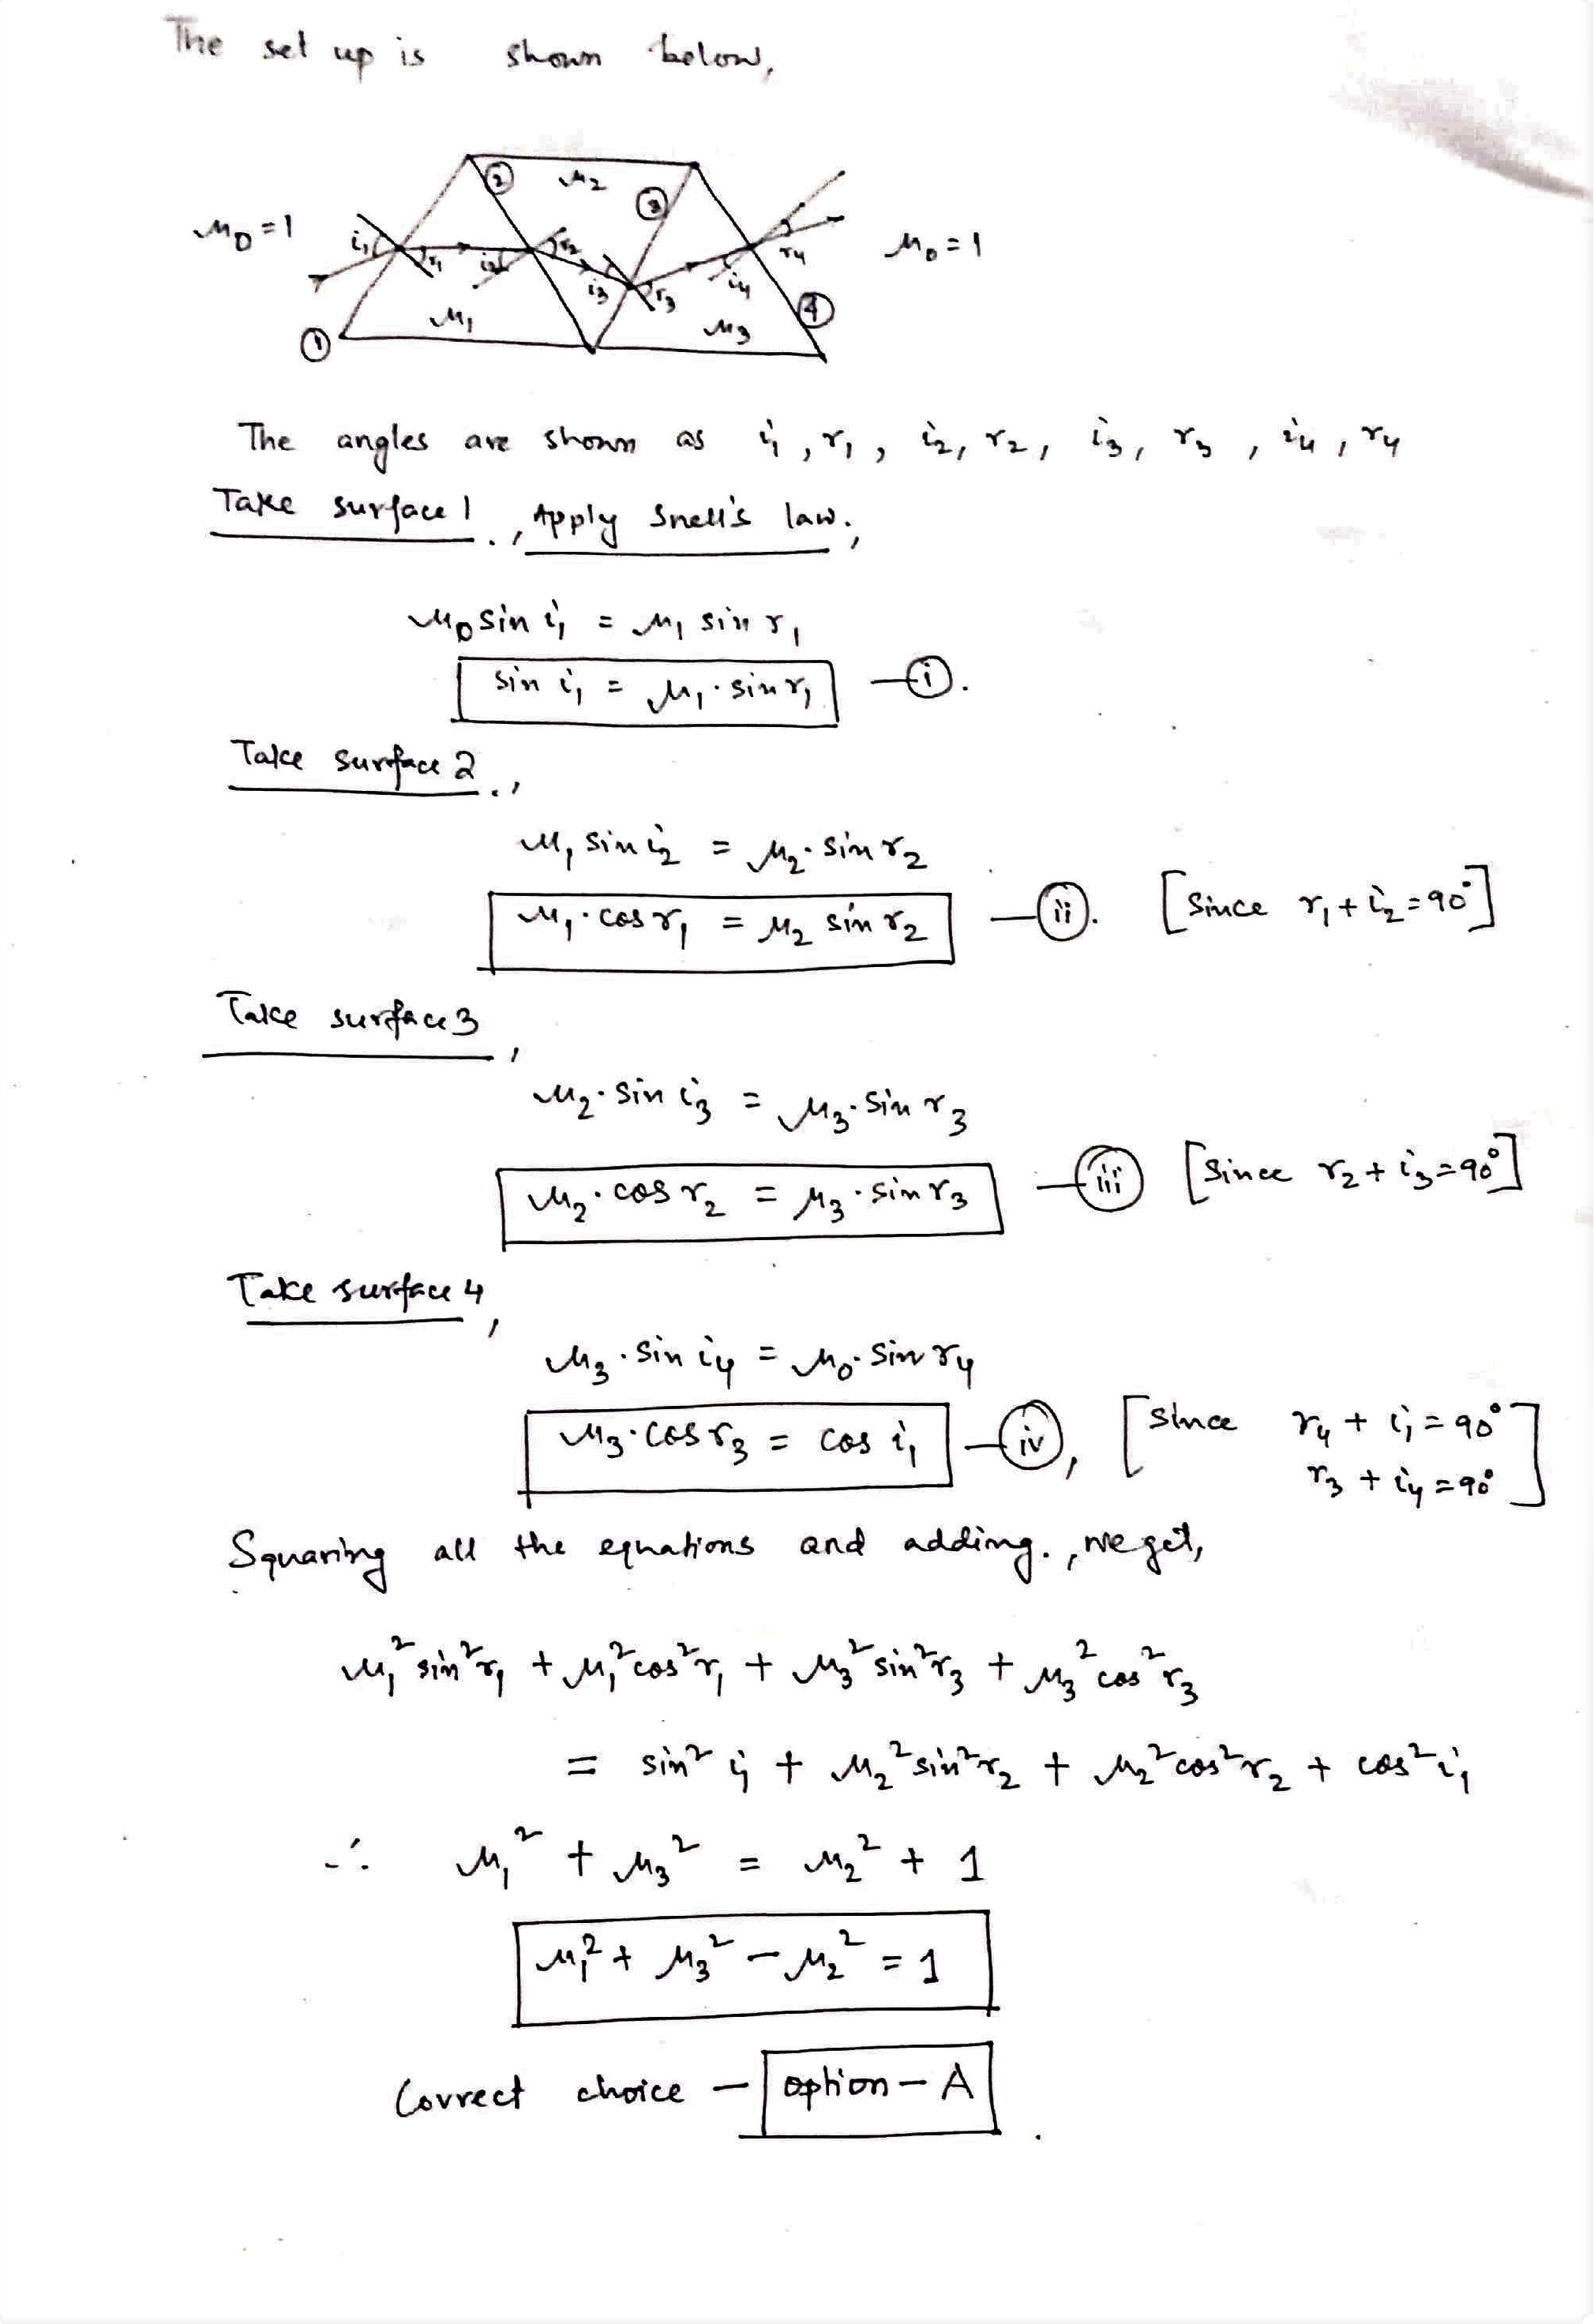 The set up is shown below,
② μ2
③
μ0 = 1 i1 r1 i2 r2 i3 r3 i4 r4 μ0 = 1
① μ1 μ3 ④
The angles are shown as i1, r1, i2, r2, i3, r3, i4, r4
Take surface 1., Apply Snell's law.,
μ0 sin i1 = μ1 sin r1
sin i1 = μ1 · sin r1 — ⓘ.
Take surface 2.,
μ1 sin i2 = μ2 · sin r2
μ1 · cos r1 = μ2 sin r2 — (ii). [Since r1 + i2 = 90°]
Take surface 3,
μ2 · sin i3 = μ3 · sin r3
μ2 · cos r2 = μ3 · sin r3 — (iii) [Since r2 + i3 = 90°]
Take surface 4,
μ3 · sin i4 = μ0 · sin r4
μ3 · cos r3 = cos i1 — (iv), [Since r4 + i1 = 90°
r3 + i4 = 90°]
Squaring all the equations and adding., we get,
μ1² sin² r1 + μ1² cos² r1 + μ3² sin² r3 + μ3² cos² r3
= sin² i1 + μ2² sin² r2 + μ2² cos² r2 + cos² i1
∴ μ1² + μ3² = μ2² + 1
μ1² + μ3² – μ2² = 1
Correct choice – option – A.